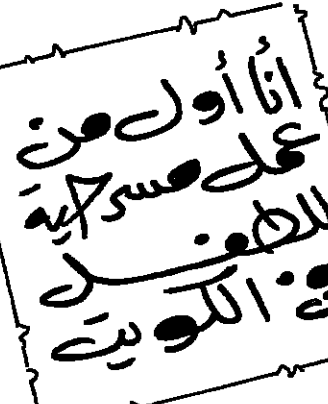 أنا أول من
عمل مسرحية
للطفل
في الكويت